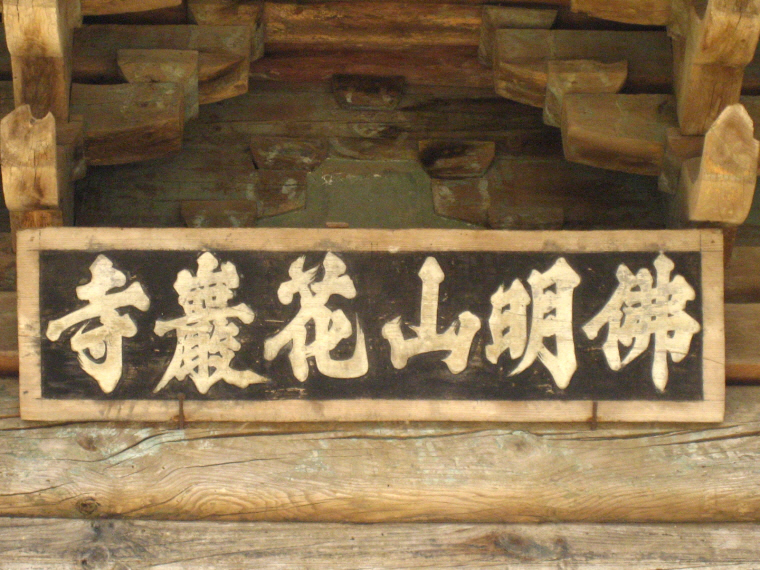 佛明山花巖寺